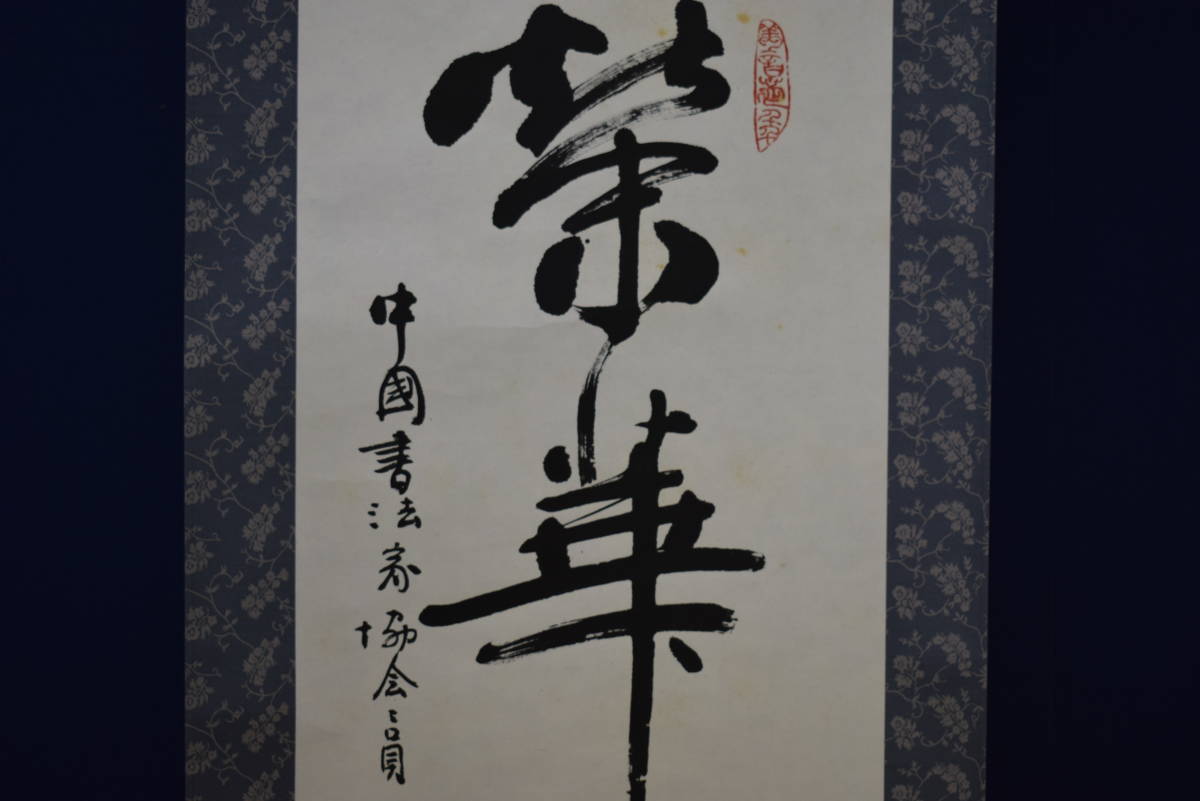 榮華
中國書法家協会会員